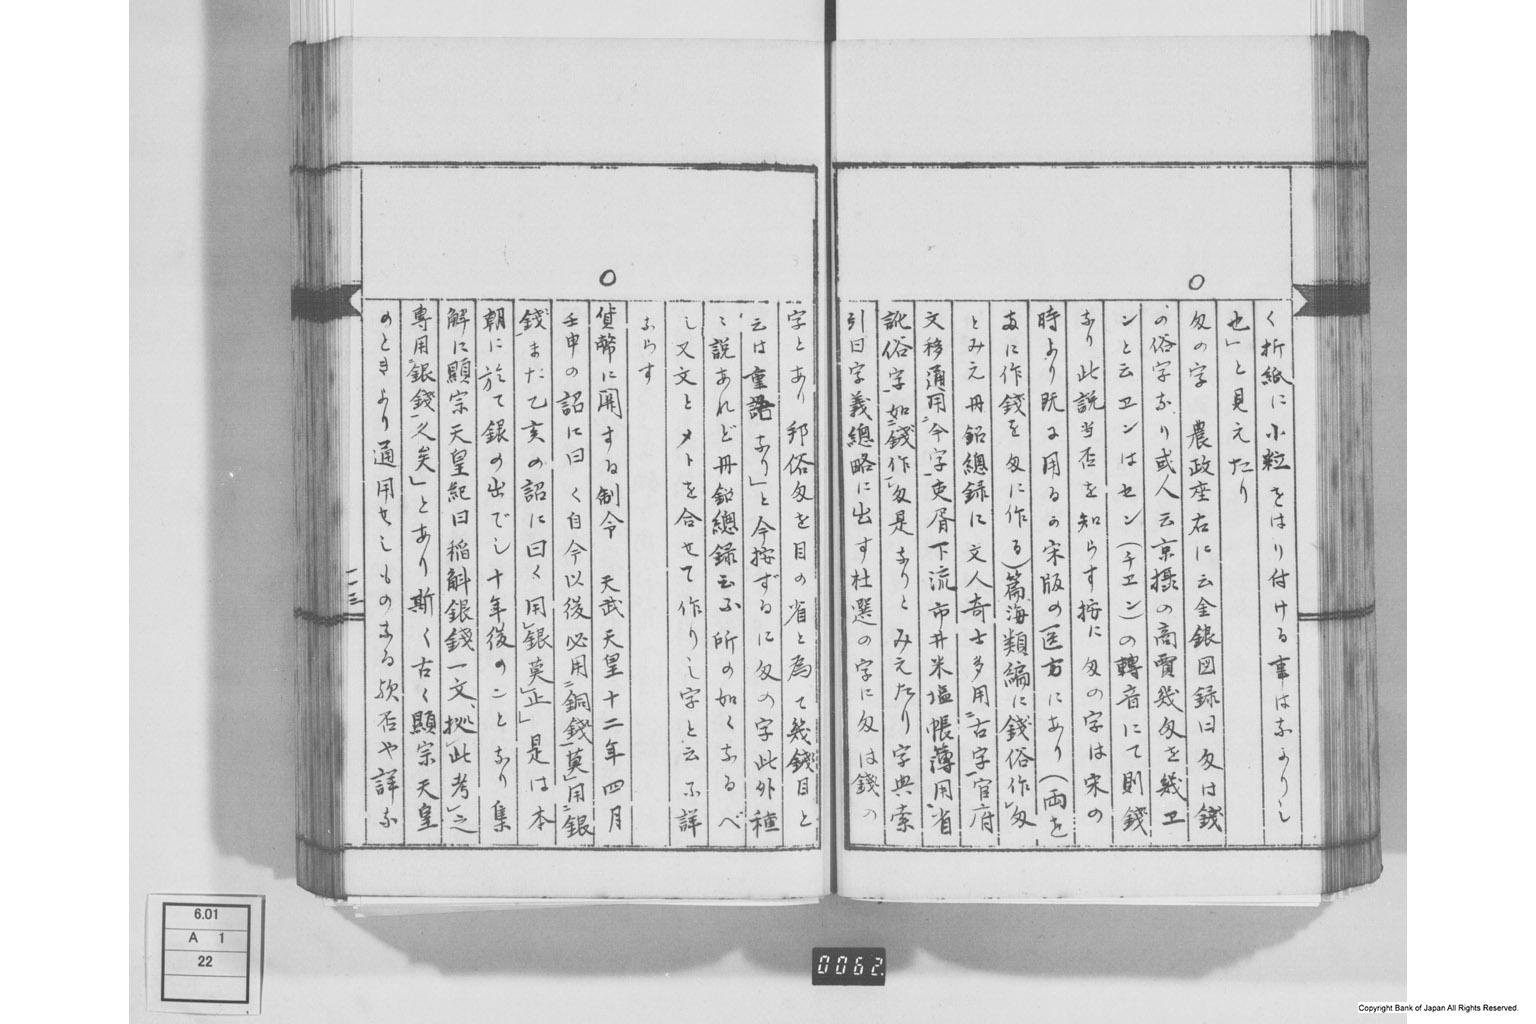 く折紙に小粒をはり付ける事はなかりし
也」と見えたり
○
匁の字 農政座右に云金銀図録曰匁は錢
の俗字なり或人云京攝の商賈幾匁を幾ヱ
ンと云ヱンはセン(チヱン)の轉音にて則錢
なり此説当否を知らす按に匁の字は宋の
時より既に用るの宋版の医方にあり(両を
友に作錢を匁に作る)篇海類編に錢俗作レ匁
とみえ丹鉛總録に文人奇士多用二古字一官府
文移通用二今字一吏胥下流市井米塩帳薄用二省
訛俗字一如二錢作一レ匁是なりとみえたり字典索
引曰字義總略に出す杜選の字に匁は錢の
字とあり邦俗匁を目の省と為て幾錢目と
云は重語なり」と今按ずるに匁の字此外種
々説あれど丹鉛總録云ふ所の如くなるべ
し又文とメトを合せて作りし字と云ふ詳
ならす
○
貨幣に開する制令 天武天皇十二年四月
壬申の詔に曰く自今以後必用二銅錢一莫レ用二銀
錢一また乙亥の詔に曰く用レ銀莫レ止」是は本
朝に於て銀の出でし十年後のことなり集
解に顯宗天皇紀曰稲斛銀錢一文、拠レ此考レ之
専用二銀錢一久矣」とあり斯く古く顯宗天皇
のときより通用せしものなる歟否や詳な
一一三
6.01
A 1
22
0062.
Copyright Bank of Japan All Rights Reserved.